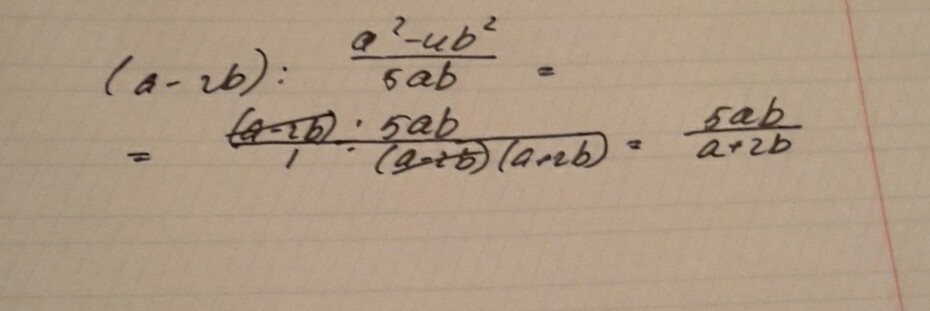 (a-2b) : \frac{a^2-4b^2}{5ab} =
= \frac{(a-2b) \cdot 5ab}{1 \cdot (a-2b)(a+2b)} = \frac{5ab}{a+2b}